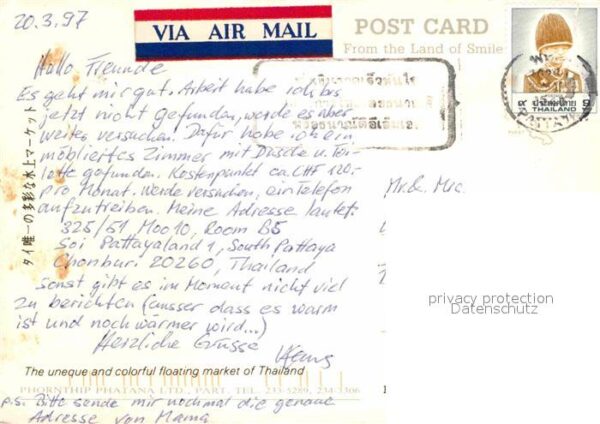 20.3.97
VIA AIR MAIL
POST CARD
From the Land of Smile
ประเทศไทย
THAILAND
๙ 9
PATTAYA
Hallo Freunde
Es geht mir gut. Arbeit habe ich bis
jetzt nicht gefunden, werde es aber
weiter versuchen. Dafür habe ich ein
möbliertes Zimmer mit Dusche u. Toi-
lette gefunden. Kostenpunkt ca. CHF 120,-
pro Monat. Werde versuchen, ein Telefon
aufzutreiben. Meine Adresse lautet:
325/51 Moo 10, Room B5
Soi Pattayaland 1, South Pattaya
Chonburi 20260, Thailand
Sonst gibt es im Moment nicht viel
zu berichten (ausser dass es warm
ist und noch wärmer wird...)
Herzliche Grüsse
タイ唯一の多彩な水上マーケット
Mr. & Mrs.
privacy protection
Datenschutz
The uneque and colorful floating market of Thailand
PHORNTHIP PHATANA LTD., PART. TEL. 233-5289, 234-3306
p.s. Bitte sende mir nochmal die genaue
Adresse von Mama